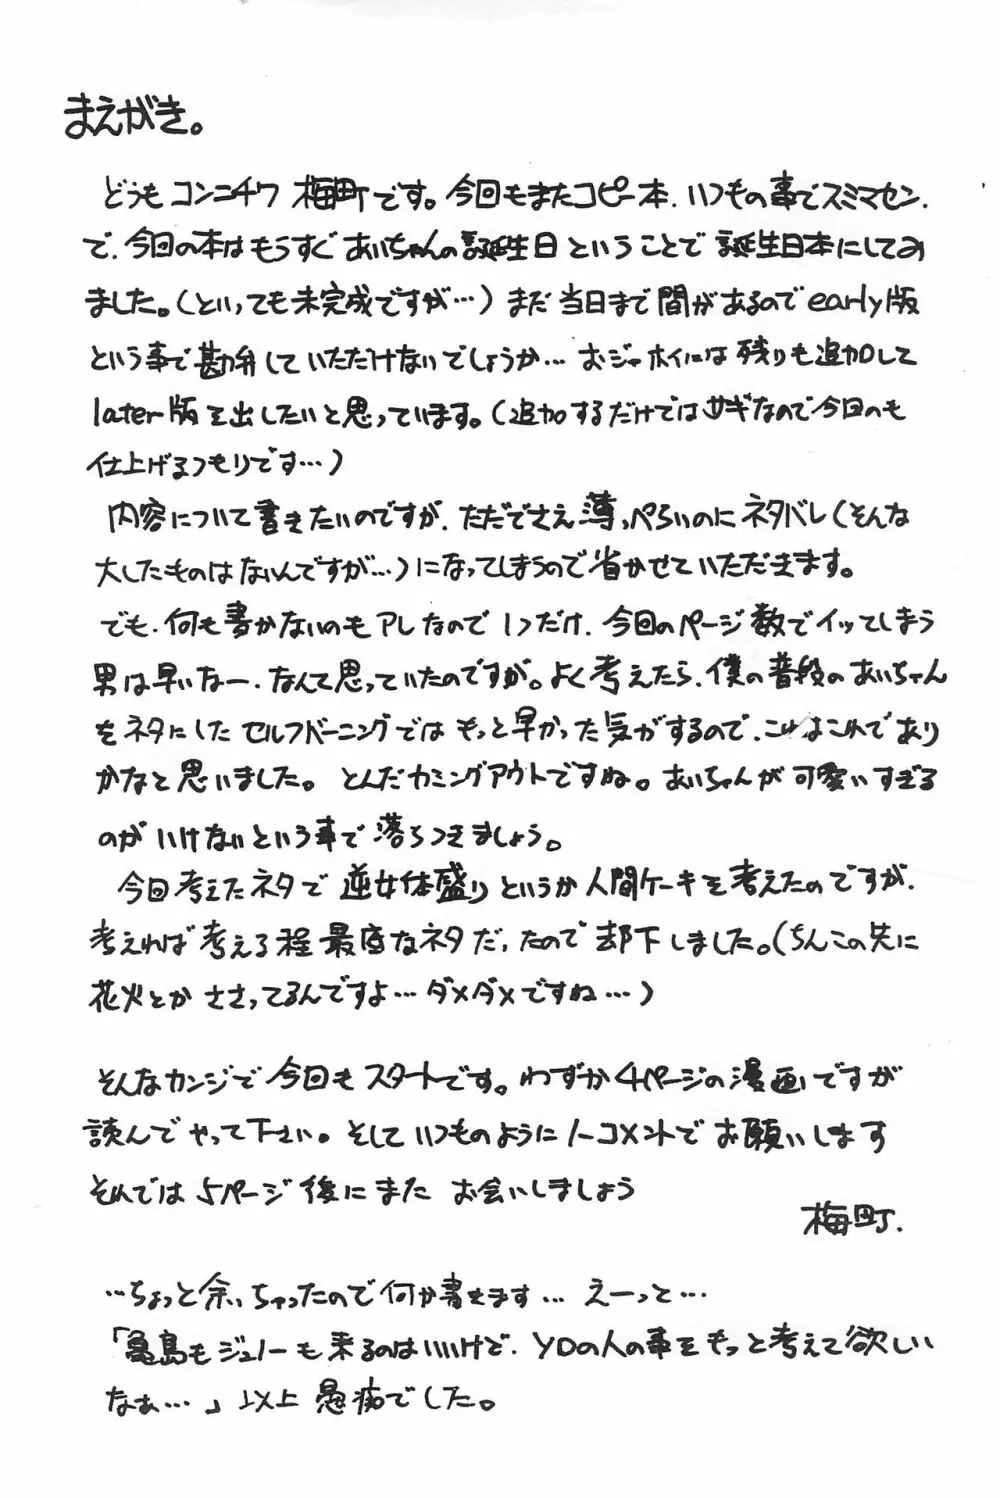 まえがき。
どうもコンニチワ 梅町です。今回もまたコピー本、いつもの事でスミマセン、
で、今回の本はもうすぐあいちゃんの誕生日ということで誕生日本にしてみ
ました。(といっても未完成ですが…)まだ当日まで間があるのでearly版
という事で勘弁していただけないでしょうか…おジャホイには残りも追加して
later版を出したいと思っています。(追加するだけではサギなので今回のも
仕上げるつもりです…)
内容について書きたいのですが、ただでさえ薄っぺらいのにネタバレ(そんな
大したものはないんですが…)になってしまうので省かせていただきます。
でも、何も書かないのもアレなので1つだけ、今回のページ数でイッてしまう
男は早いなー、なんて思っていたのですが。よく考えたら、僕の普段のあいちゃん
をネタにしたセルフバーニングではもっと早かった気がするので、これはこれであり
かなと思いました。とんだカミングアウトですね。あいちゃんが可愛いすぎる
のがいけないという事で落ちつきましょう。
今回考えたネタで逆女体盛りというか人間ケーキを考えたのですが、
考えれば考える程最底なネタだったので却下しました。(ちんこの先に
花火とかささってるんですよ…ダメダメですね…)
そんなカンジで今回もスタートです。わずか4ページの漫画ですが
読んでやって下さい。そしていつものようにノーコメントでお願いします
それでは5ページ後にまたお会いしましょう
梅町.
…ちょっと余っちゃったので何か書きます…えーっと…
「亀島もジュノーも来るのはいいけど、YDの人の事をもっと考えて欲しい
なぁ…」以上愚痴でした。